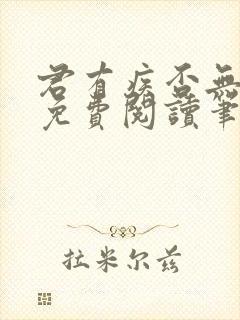 君有疾否無
免費閱讀筆
拉米尔兹